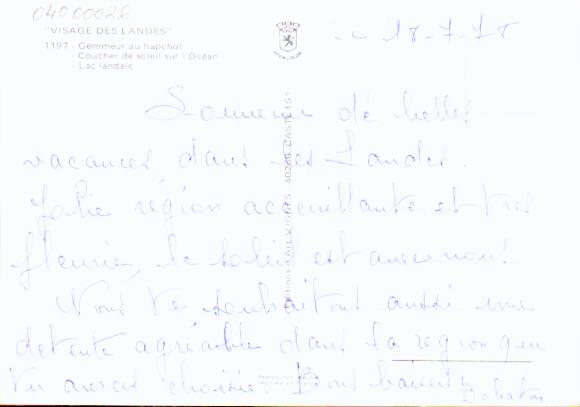 04000026
"VISAGE DES LANDES"
1197 - Gemmeur au hapchot
- Coucher de soleil sur l'Océan
- Lac landais
18-7-78
Souvenir de belles
vacances dans les Landes.
Jolie région accueillante et très
fleurie, le soleil est avec nous!
Nous te souhaitons aussi une
détente agréable dans la région que
tu auras choisie. Bons baisers
Editions d'Art VIGNES - 40260 CASTETS